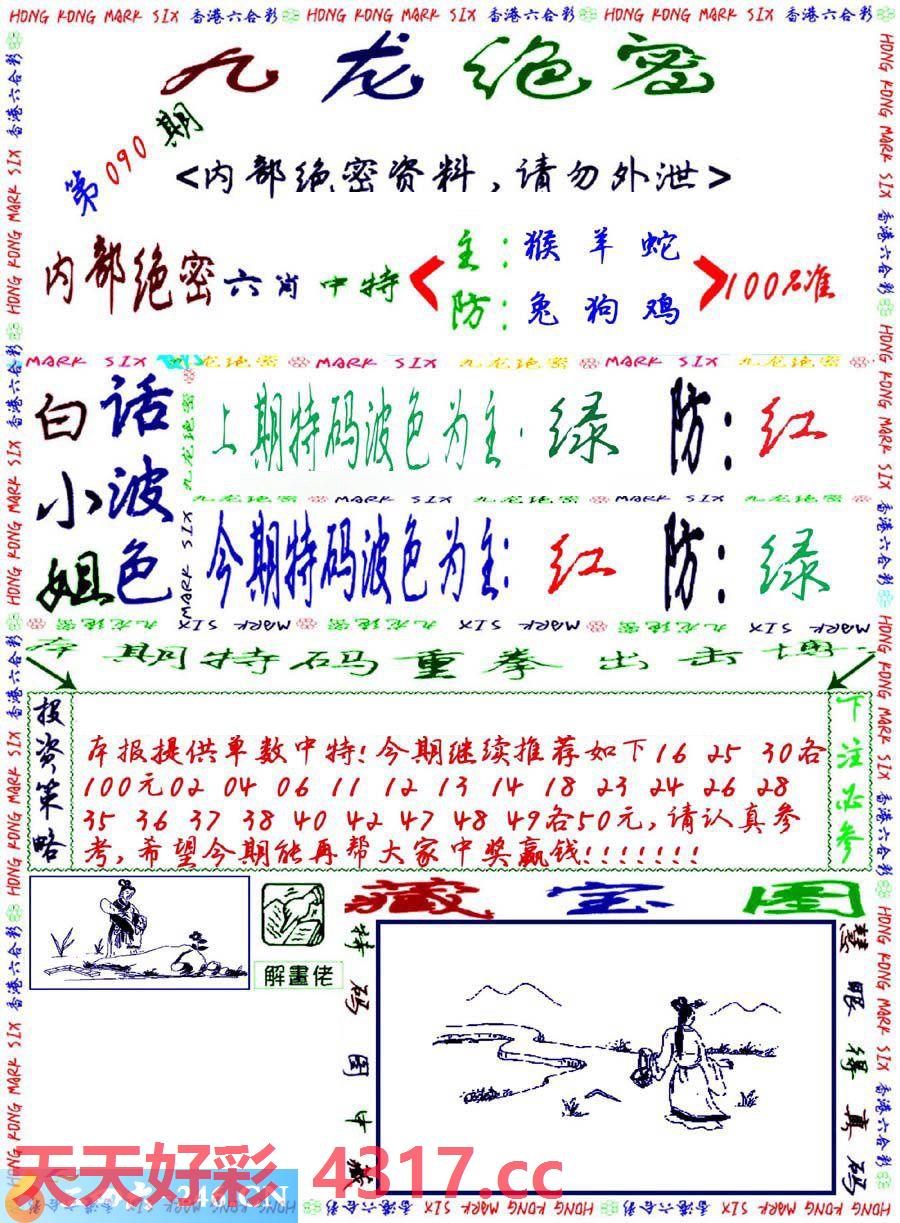 HONG KONG MARK SIX 香港六合彩 HONG KONG MARK SIX 香港六合彩 HONG KONG MARK SIX 香港六合彩
九龙绝密
第090期
<内部绝密资料,请勿外泄>
内部绝密六肖中特
主:猴羊蛇
防:兔狗鸡
100%准
MARK SIX 九龙绝密 MARK SIX 九龙绝密 MARK SIX 九龙绝密
白话
小波
姐色
上期特码波色为主:绿 防:红
九龙绝密 MARK SIX 九龙绝密 MARK SIX 九龙绝密
今期特码波色为主:红 防:绿
期特码重拳出击
投资策略
本报提供单数中特!今期继续推荐如下16 25 30各
100元02 04 06 11 12 13 14 18 23 24 26 28
35 36 37 38 40 42 47 48 49各50元,请认真参
考,希望今期能再帮大家中奖赢钱!!!!!!!
下注必参
解畫佬
藏宝图
特码图中藏
慧眼得真码
天天好彩 4317.cc